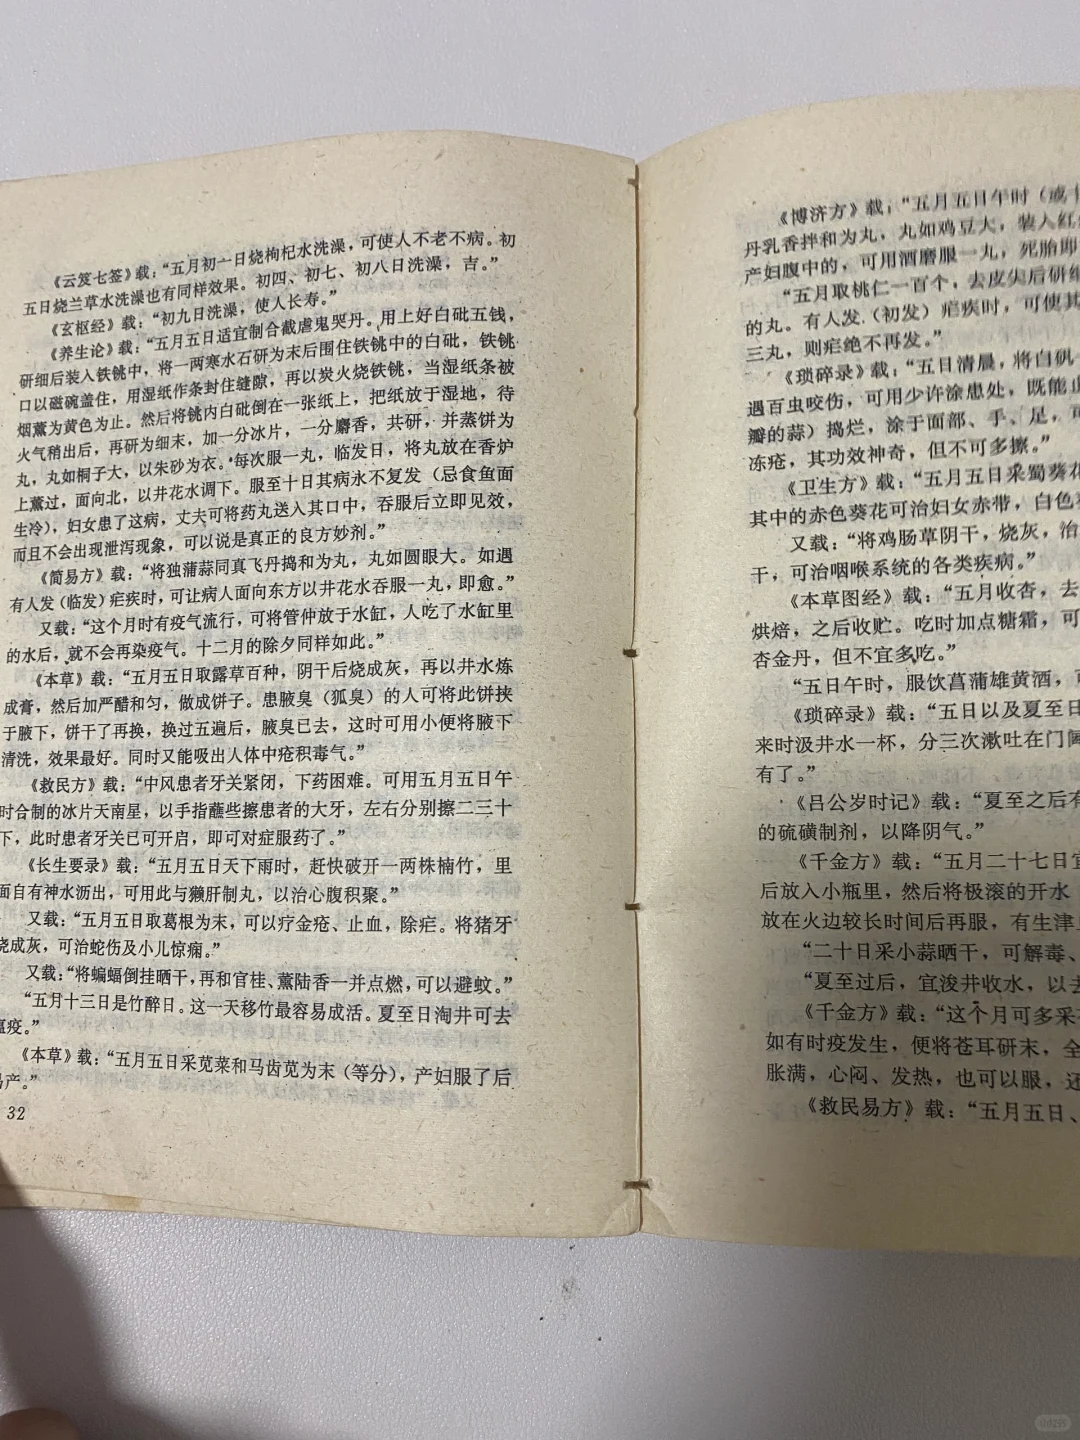 《云笈七签》载：“五月初一日烧枸杞水洗澡，可使人不老不病。初
五日烧兰草水洗澡也有同样效果。初四、初七、初八日洗澡，吉。”
《玄枢经》载：“初九日洗澡，使人长寿。”
《养生论》载：“五月五日适宜制合截虐鬼哭丹。用上好白砒五钱，
研细后装入铁铫中，将一两寒水石研为末后围住铁铫中的白砒，铁铫
口以磁碗盖住，用湿纸作条封住缝隙，再以炭火烧铁铫，当湿纸条被
烟薰为黄色为止。然后将铫内白砒倒在一张纸上，把纸放于湿地，待
火气稍出后，再研为细末，加一分冰片，一分麝香，共研，并蒸饼为
丸，丸如桐子大，以朱砂为衣。每次服一丸，临发日，将丸放在香炉
上薰过，面向北，以井花水调下。服至十日其病永不复发（忌食鱼面
生冷），妇女患了这病，丈夫可将药丸送入其口中，吞服后立即见效，
而且不会出现泄泻现象，可以说是真正的良方妙剂。”
《简易方》载：“将独蒲蒜同真飞丹捣和为丸，丸如圆眼大。如遇
有人发（临发）疟疾时，可让病人面向东方以井花水吞服一丸，即愈。”
又载：“这个月时有疫气流行，可将管仲放于水缸，人吃了水缸里
的水后，就不会再染疫气。十二月的除夕同样如此。”
《本草》载：“五月五日取露草百种，阴干后烧成灰，再以井水炼
成膏，然后加严醋和匀，做成饼子。患腋臭（狐臭）的人可将此饼挟
于腋下，饼干了再换，换过五遍后，腋臭已去，这时可用小便将腋下
清洗，效果最好。同时又能吸出人体中疮积毒气。”
《救民方》载：“中风患者牙关紧闭，下药困难。可用五月五日午
时合制的冰片天南星，以手指蘸些擦患者的大牙，左右分别擦二三十
下，此时患者牙关已可开启，即可对症服药了。”
《长生要录》载：“五月五日天下雨时，赶快破开一两株楠竹，里
面自有神水沥出，可用此与獭肝制丸，以治心腹积聚。”
又载：“五月五日取葛根为末，可以疗金疮、止血，除疟。将猪牙
烧成灰，可治蛇伤及小儿惊痫。”
又载：“将蝙蝠倒挂晒干，再和官桂、薰陆香一并点燃，可以避蚊。”
“五月十三日是竹醉日。这一天移竹最容易成活。夏至日淘井可去
疫。”
《本草》载：“五月五日采苋菜和马齿苋为末（等分），产妇服了后
产。”
32
《博济方》载：“五月五日午时（或
丹乳香拌和为丸，丸如鸡豆大，装入红
产妇腹中的，可用酒磨服一丸，死胎即
“五月取桃仁一百个，去皮尖后研细
的丸。有人发（初发）疟疾时，可使其
三丸，则疟绝不再发。”
《琐碎录》载：“五日清晨，将白矾
遇百虫咬伤，可用少许涂患处，既能止
瓣的蒜）捣烂，涂于面部、手、足，可
冻疮，其功效神奇，但不可多擦。”
《卫生方》载：“五月五日采蜀葵花
其中的赤色葵花可治妇女赤带，白色
又载：“将鸡肠草阴干，烧灰，治
干，可治咽喉系统的各类疾病。”
《本草图经》载：“五月收杏，去
烘焙，之后收贮。吃时加点糖霜，可
杏金丹，但不宜多吃。”
“五日午时，服饮菖蒲雄黄酒，可
《琐碎录》载：“五日以及夏至日
来时汲井水一杯，分三次漱吐在门阃
有了。”
《吕公岁时记》载：“夏至之后有
的硫磺制剂，以降阴气。”
《千金方》载：“五月二十七日宜
后放入小瓶里，然后将极滚的开水
放在火边较长时间后再服，有生津
“二十日采小蒜晒干，可解毒、
“夏至过后，宜浚井收水，以去
《千金方》载：“这个月可多采
如有时疫发生，便将苍耳研末，全
胀满，心闷、发热，也可以服，还
《救民易方》载：“五月五日、